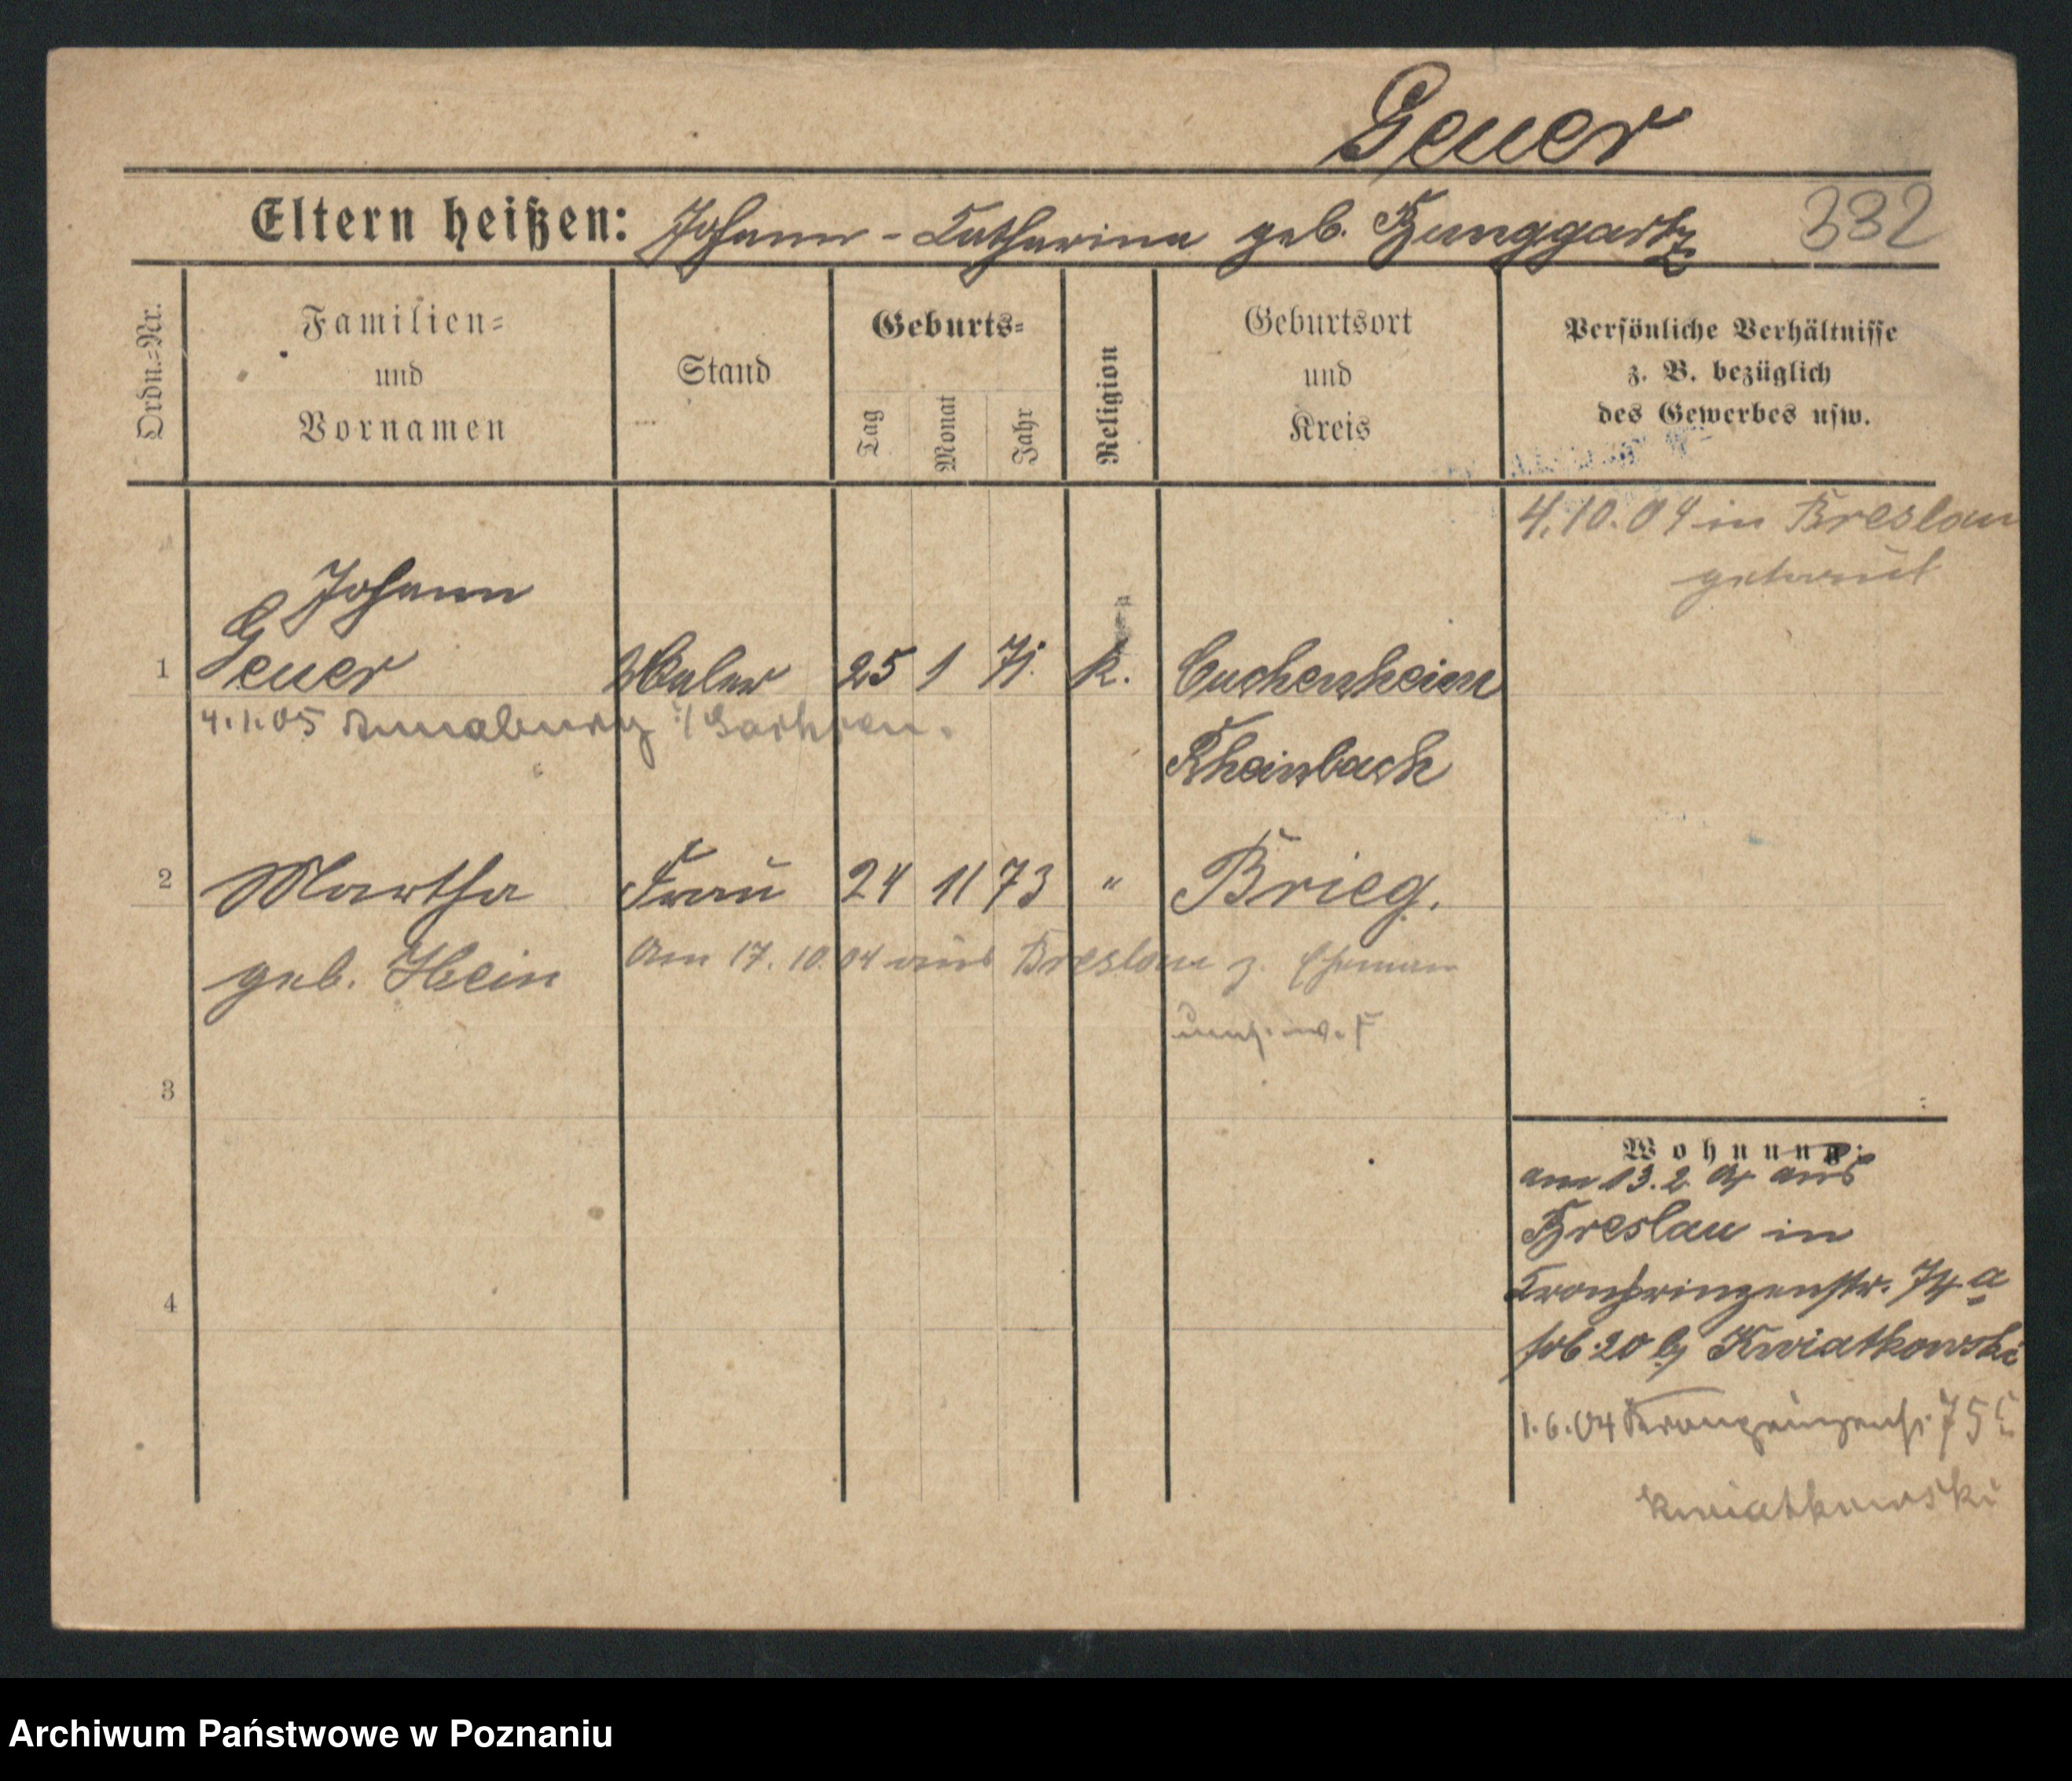 Geuer
Eltern heißen: Johann - Catharina geb. Bunggartz
332
Ordn.=Nr.
Familien=
und
Vornamen
Stand
Geburts=
Tag
Monat
Jahr
Religion
Geburtsort
und
Kreis
Persönliche Verhältnisse
z. B. bezüglich
des Gewerbes usw.
4.10.04 in Breslau
getraut
Johann
1 Geuer Maler 25 1 71. k. Cuchenheim
4.1.05 Annaburg i/Sachsen.
Rheinbach
2 Martha Frau 24 11 73 " Brieg.
geb. Hein
Am 17.10.04 aus Breslau z. Ehemann
3
4
Wohnung:
am 13.2. 04 aus
Breslau in
Kronprinzenstr. 74 a
20 bj Kwiatkowski
1.6.04 Kronprinzenst. 75
Kwiatkowski
Archiwum Państwowe w Poznaniu